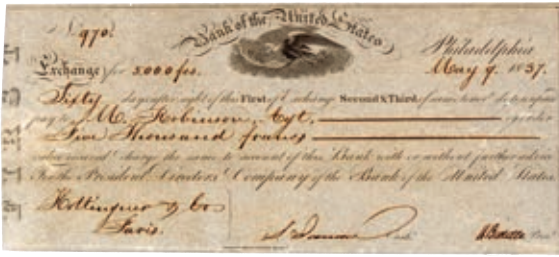 No. 970.
Bank of the United States
Philadelphia
Exchange for 5000 fcs.
May 9. 1837.
Sixty days after sight of this First of Exchange Second & Third of same tenor
pay to M. Robinson, Cgt.
Five Thousand francs
value received & charge the same to account of this Bank with or without further advice
For the President Directors & Company of the Bank of the United States
Hottinguer & Co
Paris.
Cash.
N Biddle Prest.